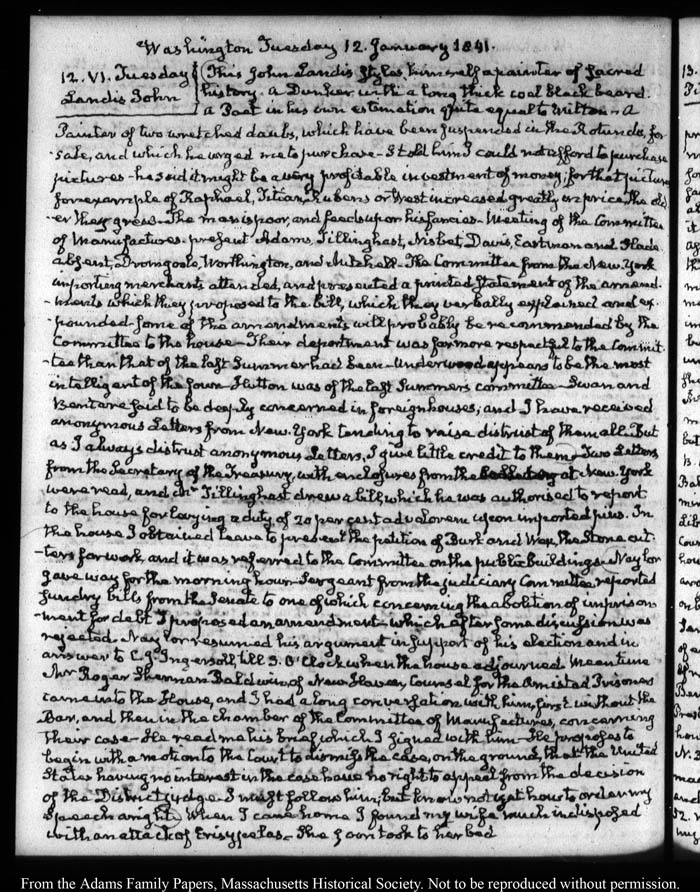 Washington Tuesday 12. January 1841.
12. VI. Tuesday
Landis John
This John Landis styles himself a painter of sacred
history. a Dunker with a long thick coal black beard.
a Poet in his own estimation quite equal to Milton. A
Painter of two wretched daubs, which have been suspended in the Rotunda, for
sale, and which he urged me to purchase. I told him I could not afford to purchase
pictures. he said it might be a very profitable investment of money, for that pictures
for example of Raphael, Titian, Rubens or West increased greatly in price the old-
er they grew. The man is poor, and feeds upon his fancies. Meeting of the Committee
of Manufactures. present Adams, Tillinghast, Nisbet, Davis, Eastman and Slade.
absent, Dromgoole, Worthington, and Mitchell. The Committee from the New York
importing merchants attended, and presented a printed statement of the amend-
ments which they proposed to the bill, which they verbally explained and ex-
pounded. some of the amendments will probably be recommended by the
Committee to the house. Their deportment was far more respectful to the Commit-
tee than that of the last Summer had been. Underwood appears to be the most
intelligent of the four. Hutton was of the last Summer's committee. Swan and
are said to be deeply concerned in foreign houses, and I have received
anonymous Letters from New-York tending to raise distrust of them all. But
as I always distrust anonymous Letters, I give little credit to them. Two Letters
from the Secretary of the Treasury, with enclosures from the at New York
were read, and Mr Tillinghast drew a bill, which he was authorised to report
to the house for laying a duty of 20 per cent ad valorem upon imported pins. In
the house I obtained leave to present the petition of and the Stone cut-
ters for work, and it was referred to the Committee on the public buildings. Naylor
gave way for the morning hour. Sergeant from the Judiciary Committee, reported
sundry bills from the Senate to one of which concerning the abolition of imprison-
ment for debt I proposed an amendment. which after some discussion was
rejected. Naylor resumed his argument in support of his election and in
answer to C. J. Ingersoll, till 3. O'Clock when the house adjourned. Meantime
Mr Roger Sherman Baldwin, of New Haven, Counsel for the Amistad Prisoners
came into the House, and I had a long conversation with him, first without the
Bar, and then in the chamber of the Committee of Manufactures, concerning
their case. He read me his brief which I signed with him. He proposes to
begin with a motion to the Court to dismiss the case, on the ground, that the United
States having no interest in the case have no right to appeal from the decision
of the District judge. I must follow him, but know not yet how to order my
speech aright. When I came home I found my wife much indisposed
with an attack of Erisypelas. She soon took to her bed
From the Adams Family Papers, Massachusetts Historical Society. Not to be reproduced without permission.